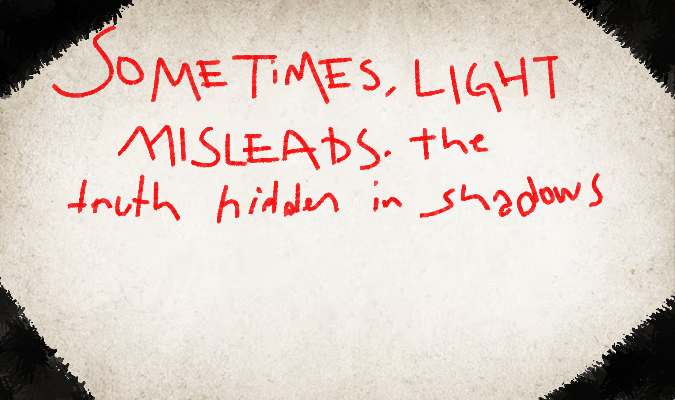 SOMETiMES, LIGHT
MISLEADS. the
truth hidden in shadows